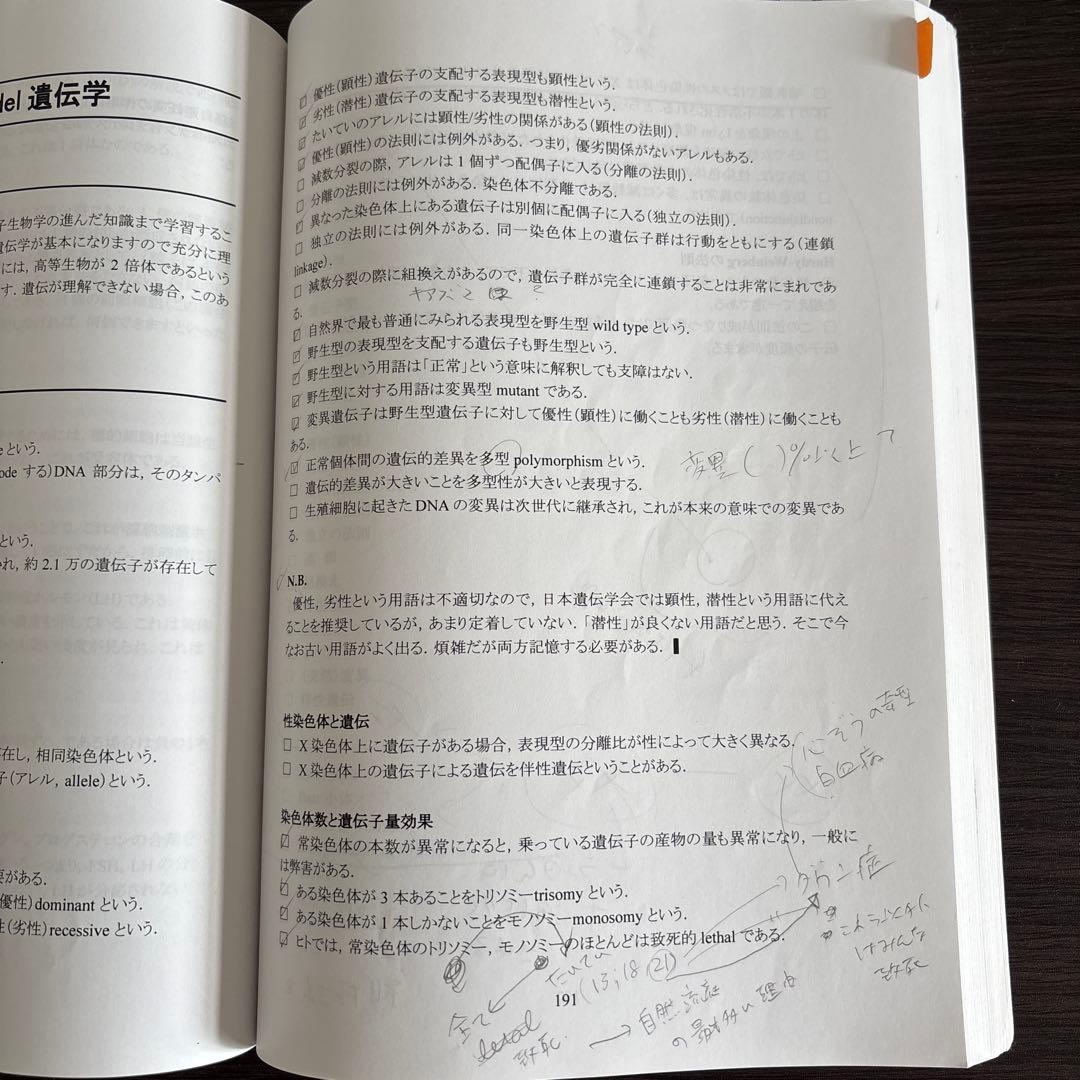 del 遺伝学
子生物学の進んだ知識まで学習するこ
遺伝学が基本になりますので充分に理
には, 高等生物が 2 倍体であるという
す. 遺伝が理解できない場合, このあ
という.
ode する)DNA 部分は, そのタンパ
という.
れ, 約 2.1 万の遺伝子が存在して
在し, 相同染色体という.
子(アレル, allele)という.
要がある.
優性)dominant という.
(劣性)recessive という.
□ 優性(顕性)遺伝子の支配する表現型も顕性という.
☑ 劣性(潜性)遺伝子の支配する表現型も潜性という.
☑ たいていのアレルには顕性/劣性の関係がある(顕性の法則).
☑ 優性(顕性)の法則には例外がある. つまり, 優劣関係がないアレルもある.
□ 減数分裂の際, アレルは 1 個ずつ配偶子に入る(分離の法則).
□ 分離の法則には例外がある. 染色体不分離である.
☑ 異なった染色体上にある遺伝子は別個に配偶子に入る(独立の法則).
□ 独立の法則には例外がある. 同一染色体上の遺伝子群は行動をともにする(連鎖
linkage).
□ 減数分裂の際に組換えがあるので, 遺伝子群が完全に連鎖することは非常にまれであ
る.
☑ 自然界で最も普通にみられる表現型を野生型 wild type という.
☑ 野生型の表現型を支配する遺伝子も野生型という.
☑ 野生型という用語は「正常」という意味に解釈しても支障はない.
☑ 野生型に対する用語は変異型 mutant である.
☑ 変異遺伝子は野生型遺伝子に対して優性(顕性)に働くことも劣性(潜性)に働くことも
ある.
☑ 正常個体間の遺伝的差異を多型 polymorphism という.
変異( )%以上?
□ 遺伝的差異が大きいことを多型性が大きいと表現する.
□ 生殖細胞に起きた DNA の変異は次世代に継承され, これが本来の意味での変異であ
る.
N.B.
優性, 劣性という用語は不適切なので, 日本遺伝学会では顕性, 潜性という用語に代え
ることを推奨しているが, あまり定着していない. 「潜性」が良くない用語だと思う. そこで今
なお古い用語がよく出る. 煩雑だが両方記憶する必要がある.
性染色体と遺伝
□ X 染色体上に遺伝子がある場合, 表現型の分離比が性によって大きく異なる.
□ X 染色体上の遺伝子による遺伝を伴性遺伝ということがある.
心ぞうの奇型
白血病
染色体数と遺伝子量効果
☑ 常染色体の本数が異常になると, 乗っている遺伝子の産物の量も異常になり, 一般に
は弊害がある.
☑ ある染色体が 3 本あることをトリソミーtrisomy という.
☑ ある染色体が 1 本しかないことをモノソミーmonosomy という.
☑ ヒトでは, 常染色体のトリソミー, モノソミーのほとんどは致死的 lethal である.
ダウン症
これらいがい
はみんな
致死
だいたい
(13, 18 21)
全て
lethal
致死.
→ 自然流産
の最も多い理由
191